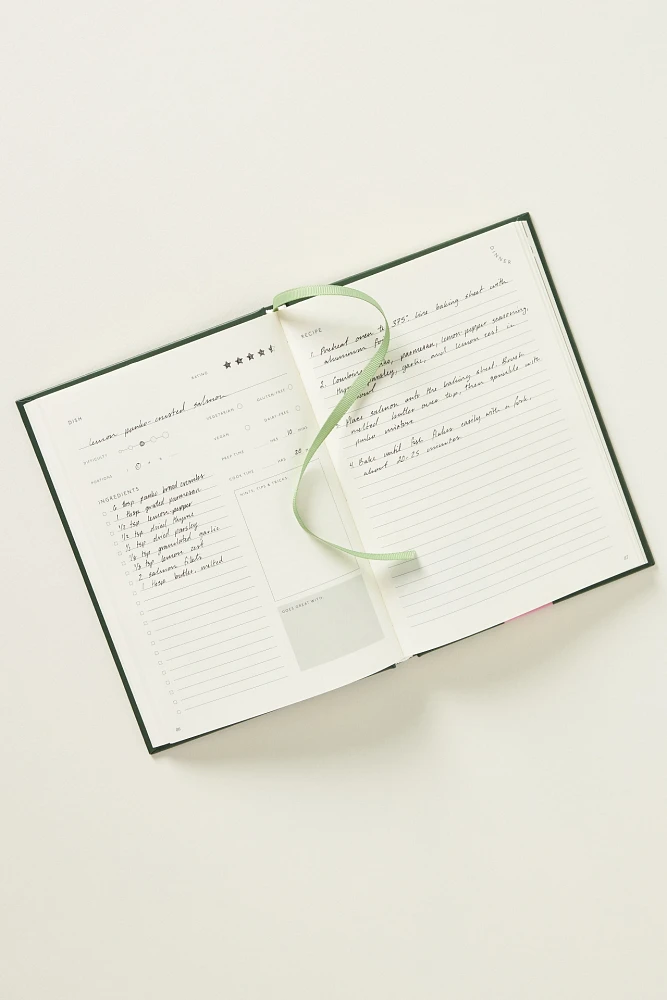 DISH
RATING
lemon panko-crusted salmon
DIFFICULTY
VEGETARIAN
GLUTEN-FREE
VEGAN
DAIRY-FREE
PORTIONS
PREP TIME HRS 10 MINS
COOK TIME HRS 20
INGREDIENTS
6 tbsp panko bread crumbs
1 tbsp grated parmesan
1/2 tsp lemon-pepper
1/2 tsp dried thyme
1/2 tsp dried parsley
1/8 tsp granulated garlic
1/8 tsp lemon zest
2 salmon filets
1 tbsp butter, melted
HINTS, TIPS & TRICKS
GOES GREAT WITH
DINNER
RECIPE
1. Preheat oven to 375°. Line baking sheet with
aluminum
2. Combine parmesan, lemon-pepper seasoning,
parsley, garlic, and lemon zest in
Place salmon onto the baking sheet. Brush
melted butter over top, then sprinkle with
panko mixture.
4. Bake until fish flakes easily with a fork,
about 20-25 minutes.